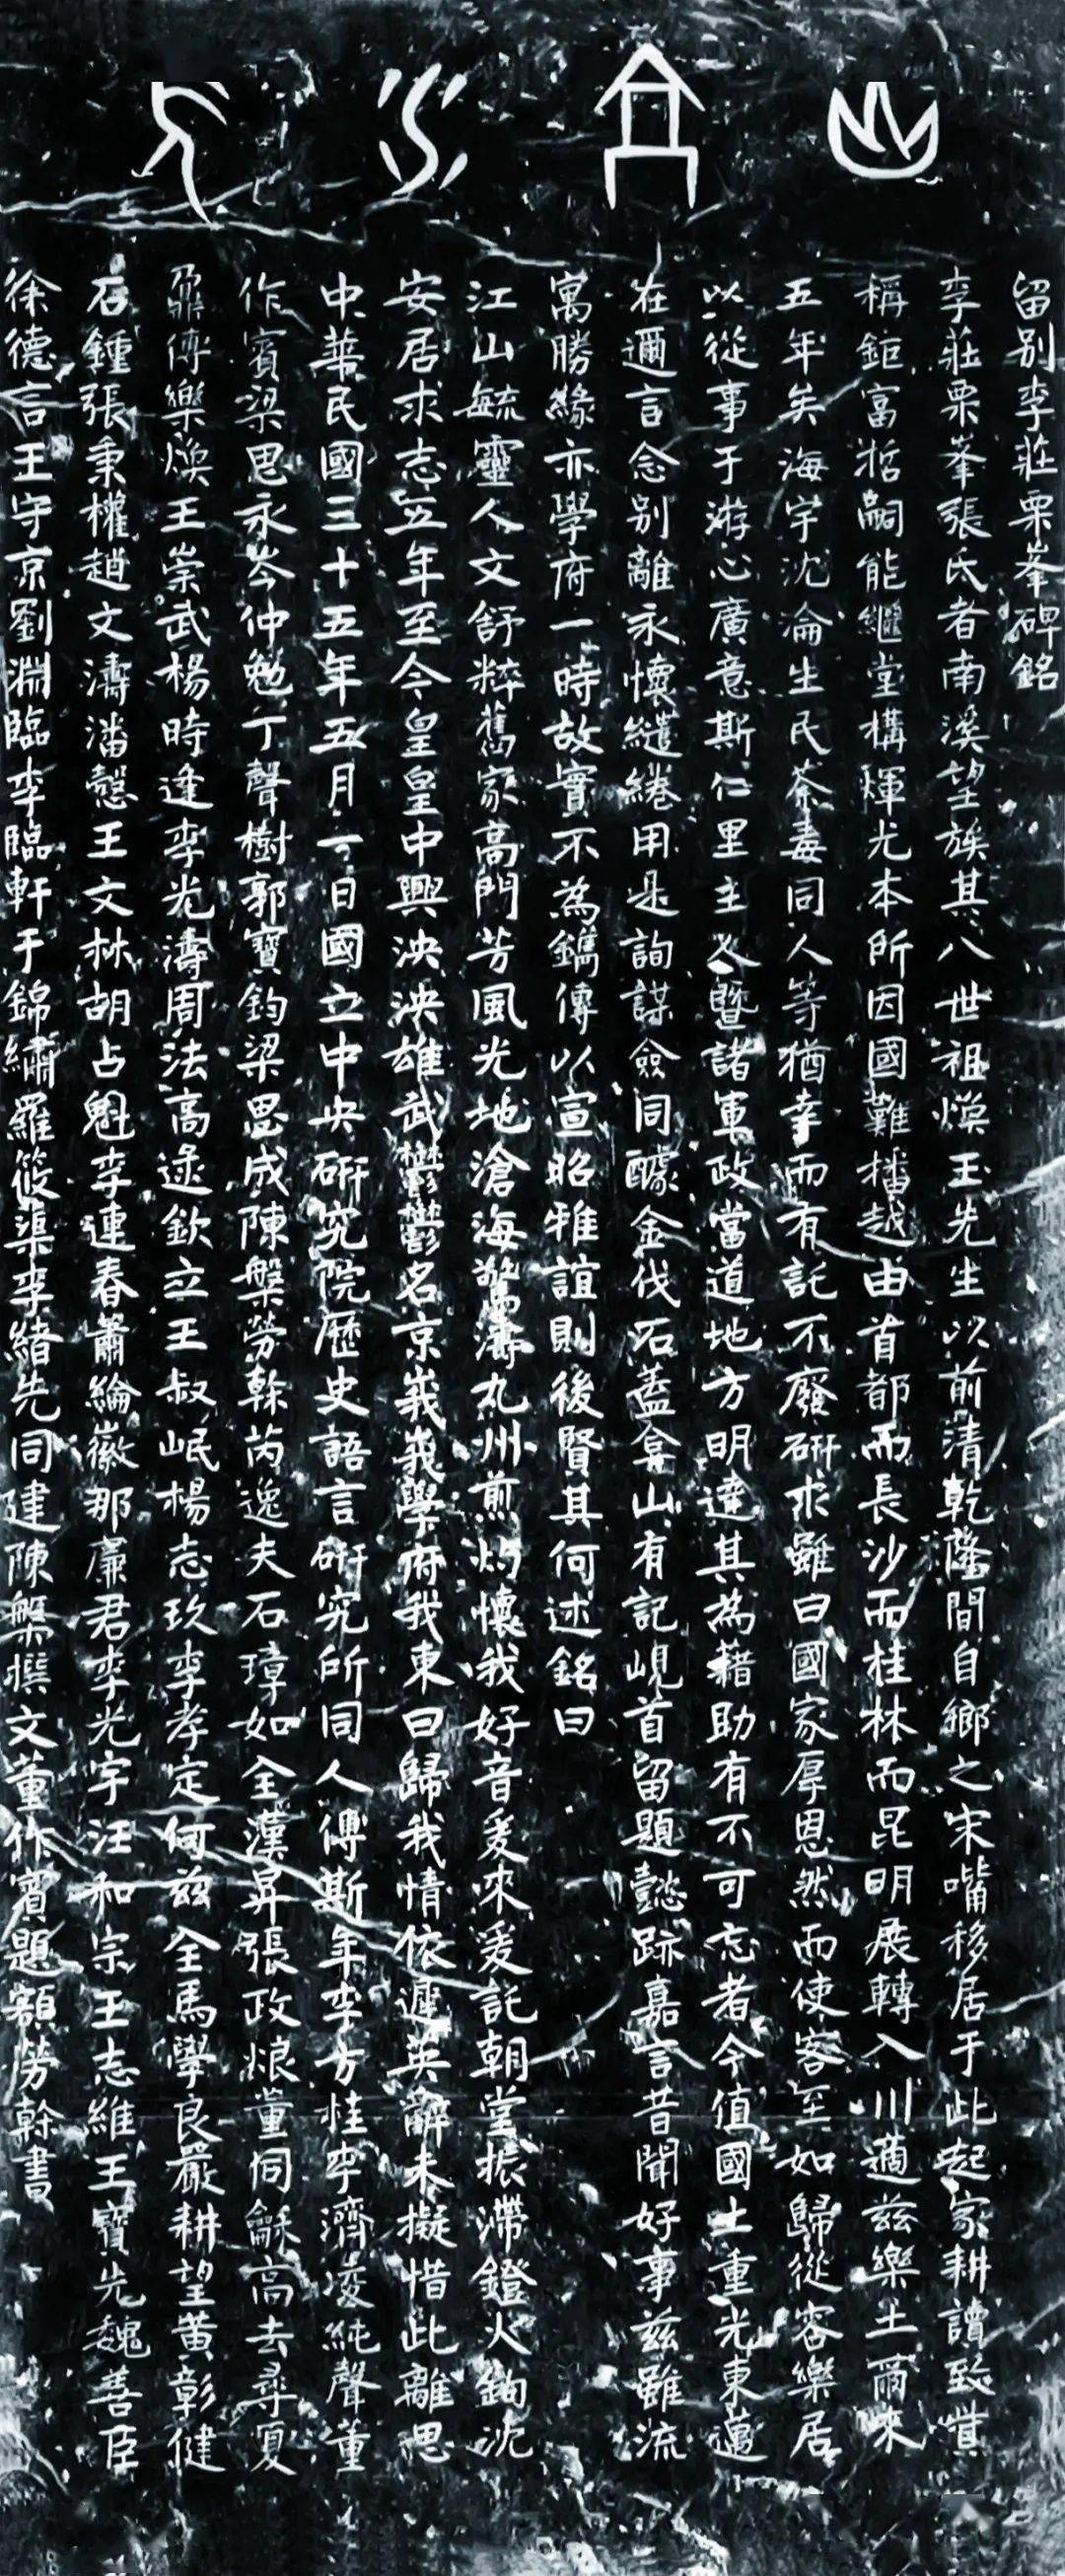 山高水長
留別李莊栗峯碑銘
李莊栗峯張氏者南溪望族其八世祖煥玉先生以前清乾隆間自鄉之宋嘴移居于此起家耕讀致貲
稱鉅富哲嗣能繼堂構輝光本所因國難播越由首都而長沙而桂林而昆明展轉入川適茲樂土爾來
五年矣海宇沈淪生民荼毒同人等猶幸而有託不廢研求雖曰國家厚恩然而使客至如歸從容樂居
以從事于游心廣意斯仁里主人暨諸軍政當道地方明達其為藉助有不可忘者今值國土重光東邁
在邇言念別離永懷繾綣用是詢謀僉同醵金伐石蓋弇山有記峴首留題懿跡嘉言昔聞好事茲雖流
寓勝緣亦學府一時故實不為鐫傳以宣昭雅誼則後賢其何述銘曰
江山毓靈人文舒粹舊家高門芳風光地滄海驚濤九州煎灼懷我好音爰來爰託朝堂振滯鐙火鉤沈
安居求志五年至今皇皇中興泱泱雄武鬱鬱名京峩峩學府我東曰歸我情依遲英辭未擬惜此離思
中華民國三十五年五月一日國立中央研究院歷史語言研究所同人傅斯年李方桂李濟凌純聲董
作賓梁思永岑仲勉丁聲樹郭寶鈞梁思成陳槃勞榦芮逸夫石璋如全漢昇張政烺董同龢高去尋夏
鼐傅樂煥王崇武楊時逢李光濤周法高逯欽立王叔岷楊志玖李孝定何茲全馬學良嚴耕望黃彰健
石鍾張秉權趙文濤潘愨王文林胡占魁李連春蕭綸徽那廉君李光宇汪和宗王志維王寶先魏善臣
徐德言王守京劉淵臨李臨軒于錦繡羅筱蕖李緒先同建陳槃撰文董作賓題額勞榦書